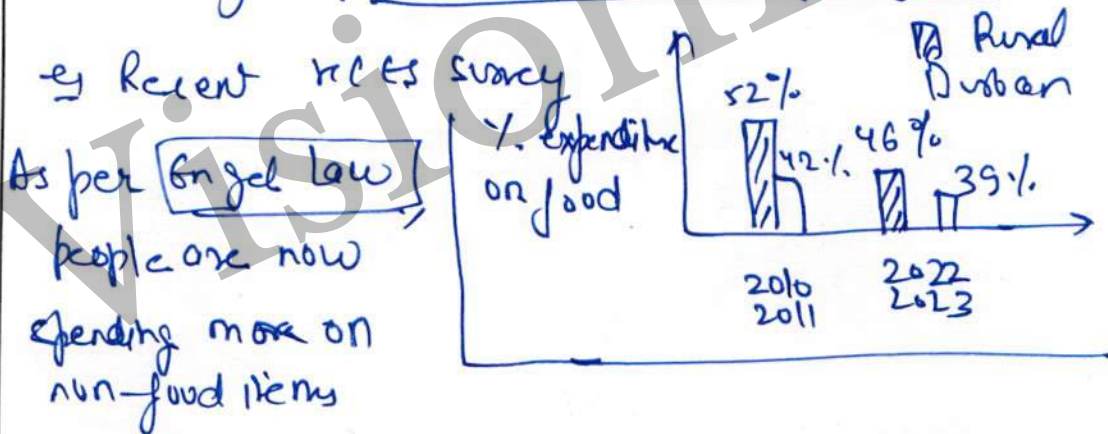 eg Recent HCES survey
As per Engel Law
people are now
spending more on
non-food items
% expenditure
on food
Rural
Urban
52%
42%
46%
39%
2010
2011
2022
2023
Vision